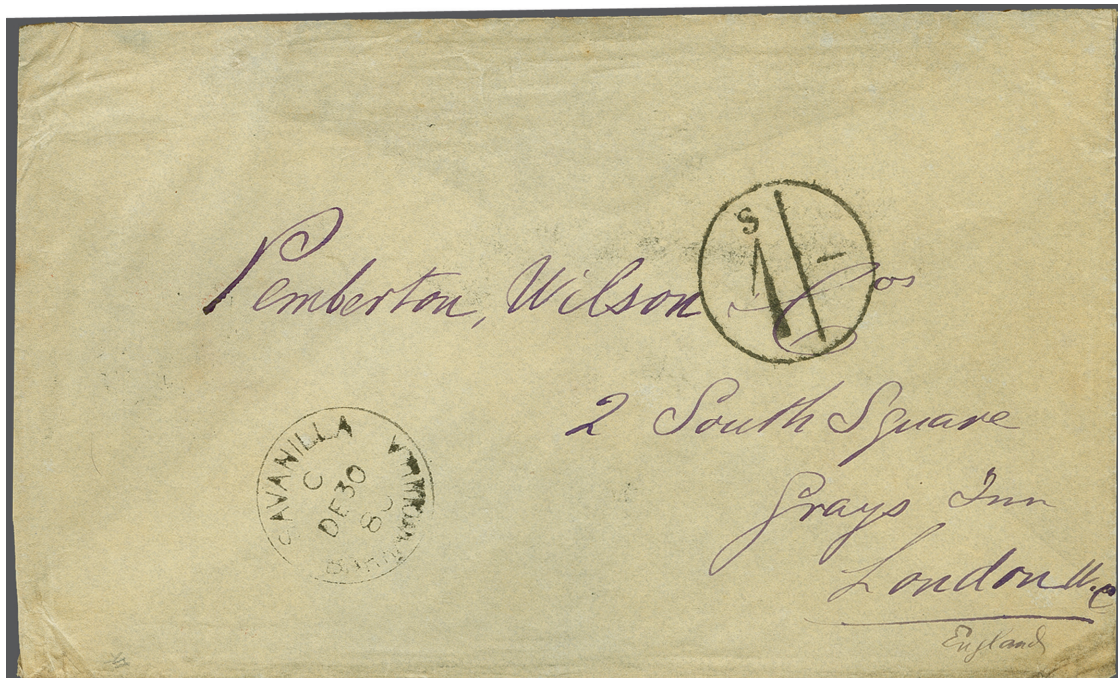 S
1 -
Pemberton, Wilson & Cos
2 South Square
Grays Inn
London W.C
England
SAVANILLA
C
DE 30
80